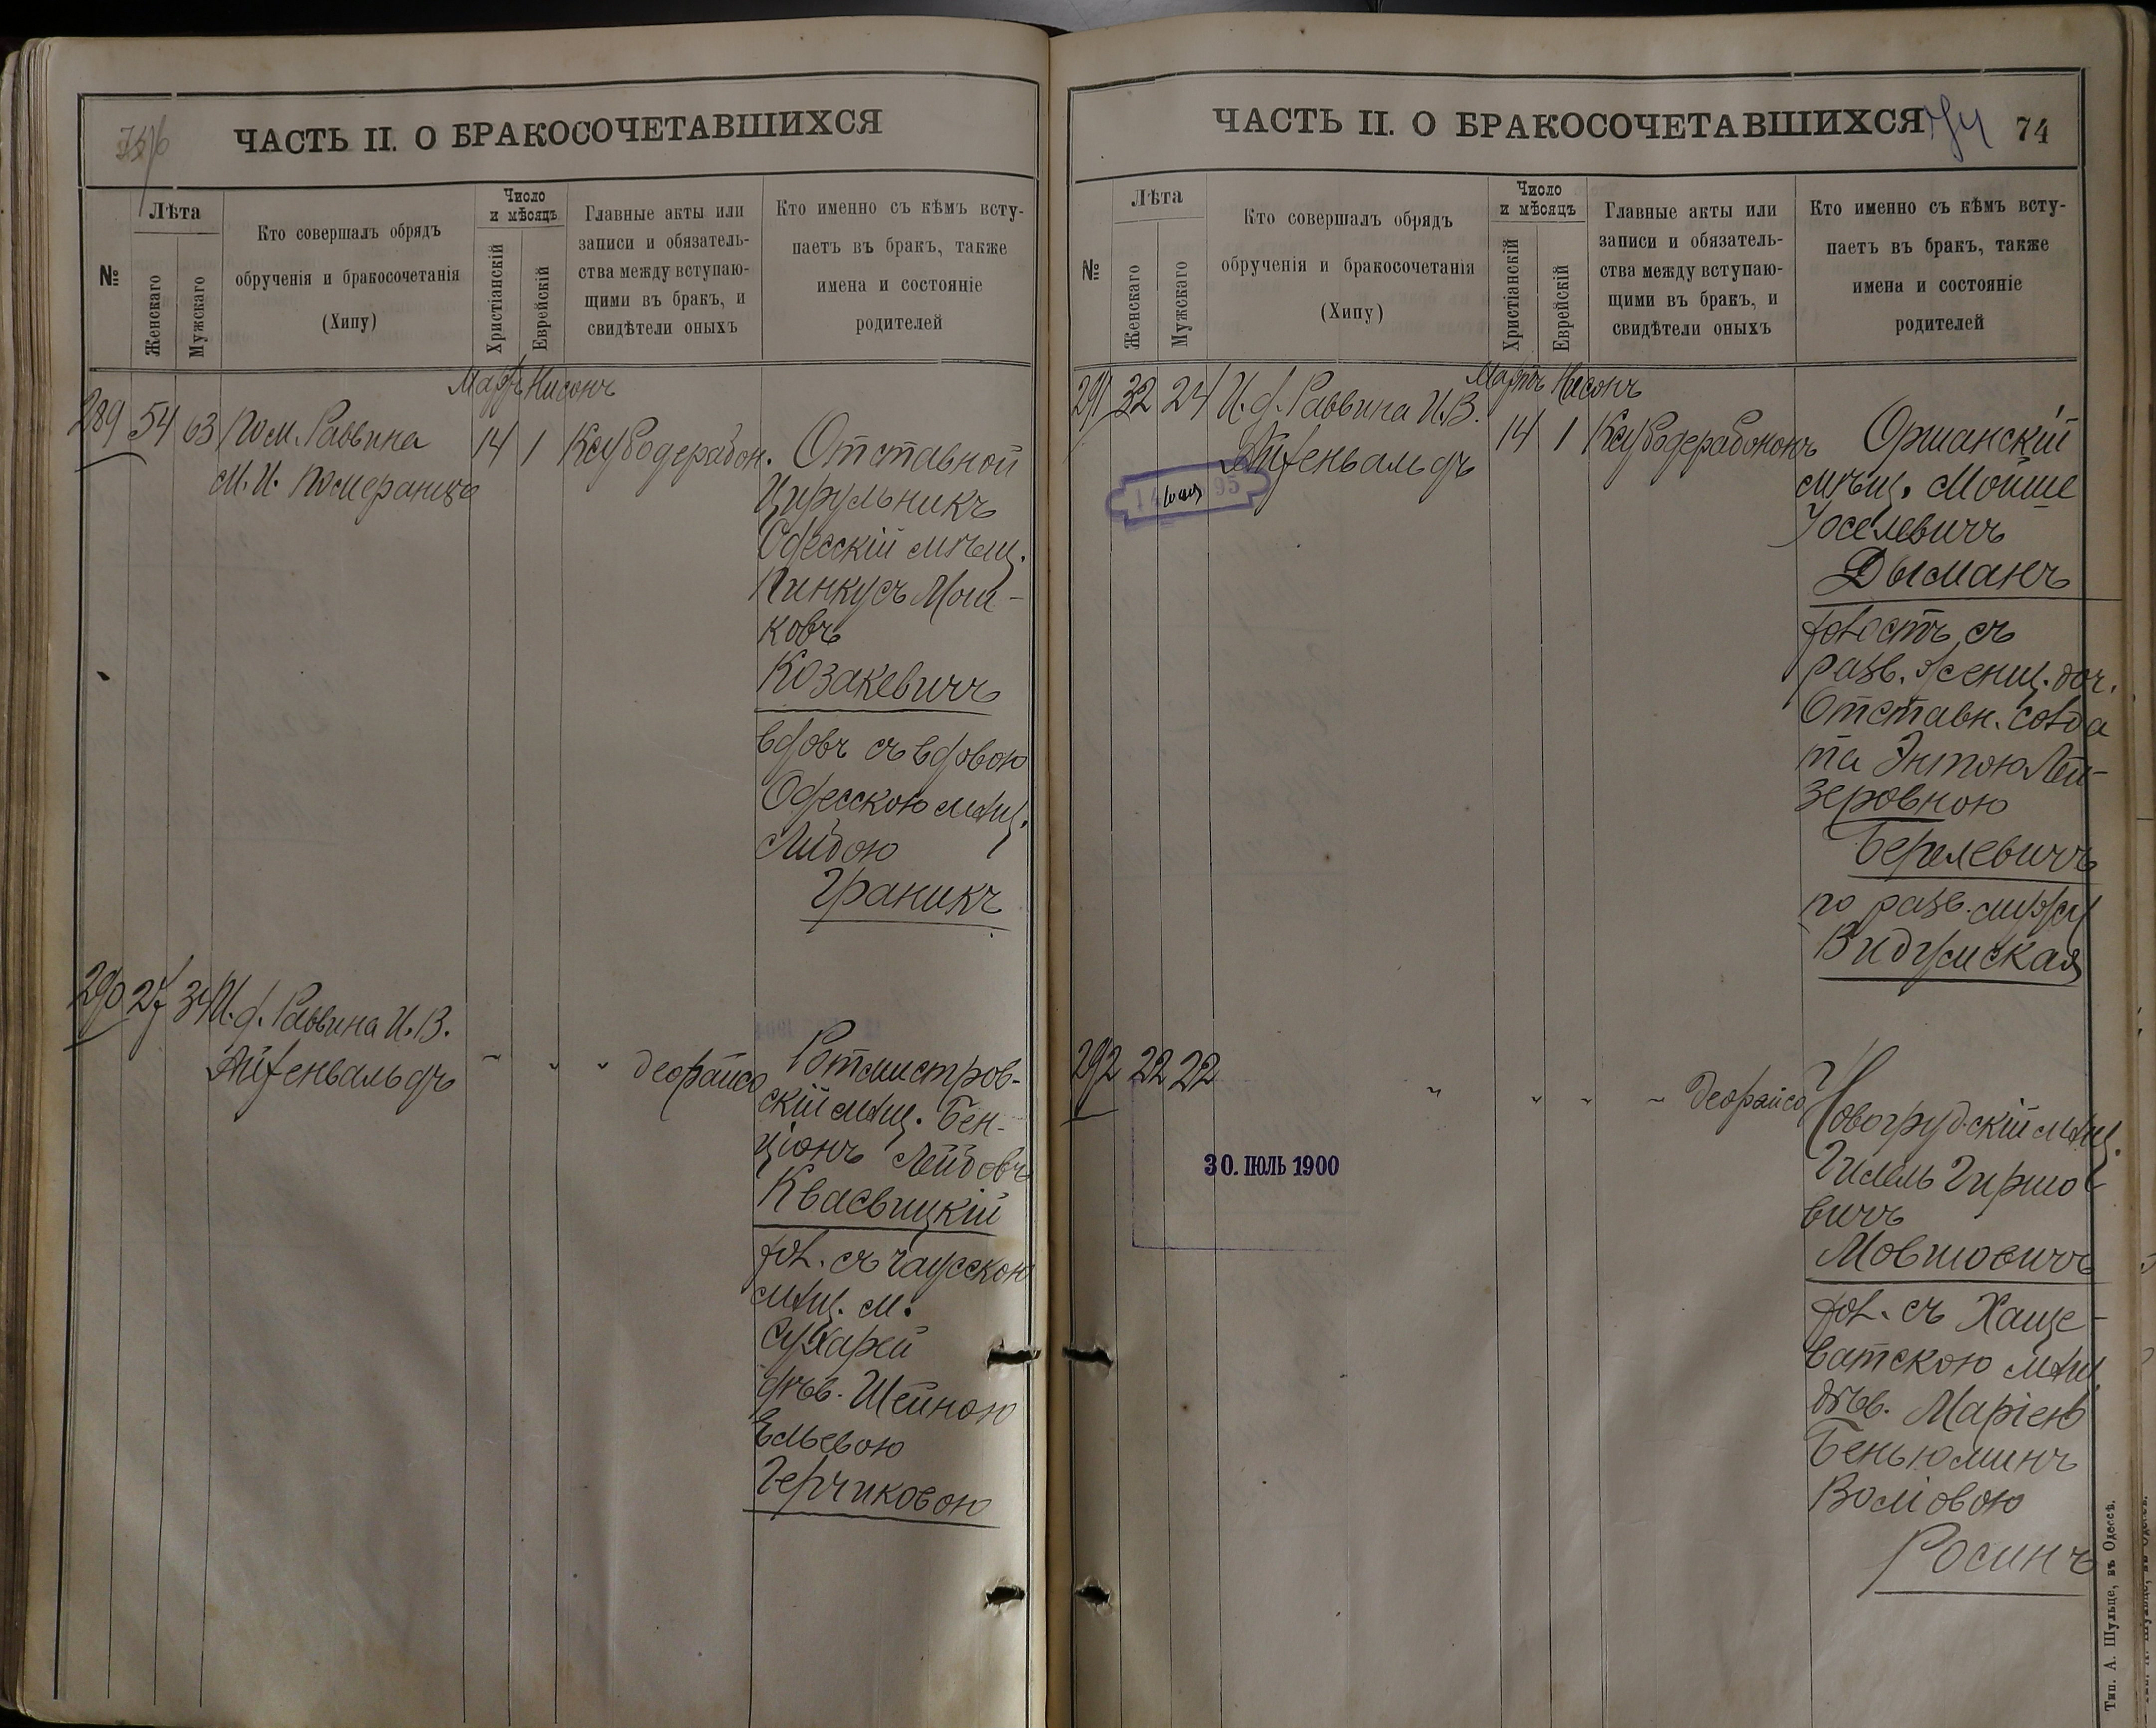 ЧАСТЬ II. О БРАКОСОЧЕТАВШИХСЯ
№
Лѣта
Женскаго
Мужскаго
Кто совершалъ обрядъ
обрученія и бракосочетанія
(Хипу)
Число
и мѣсяцъ
Христіанскій
Еврейскій
Главные акты или
записи и обязатель-
ства между вступаю-
щими въ бракъ, и
свидѣтели оныхъ
Кто именно съ кѣмъ всту-
паетъ въ бракъ, также
имена и состояніе
родителей
Мартъ Нисонъ
289 54 63 Пом. Раввина
М. И. Померанцъ
14 1 Ксубодерабон.
Отставной
Цирульникъ
Одесскій мѣщ.
Пинкусъ Мош-
ковъ
Козакевичъ
вдовъ съ вдовою
Одесскою мѣщ.
Либою
Граникъ
290 27 34 И. д. Раввина И. В.
Айзенвальдъ
" " " деорайсо
Ротмистров-
скій мѣщ. Бен-
ціонъ Лейбовъ
Квасвицкій
хол. съ Чаусскою
мѣщ. м.
Сухарей
дѣв. Шейною
Ельевою
Герчиковою
ЧАСТЬ II. О БРАКОСОЧЕТАВШИХСЯ
74
74
№
Лѣта
Женскаго
Мужскаго
Кто совершалъ обрядъ
обрученія и бракосочетанія
(Хипу)
Число
и мѣсяцъ
Христіанскій
Еврейскій
Главные акты или
записи и обязатель-
ства между вступаю-
щими въ бракъ, и
свидѣтели оныхъ
Кто именно съ кѣмъ всту-
паетъ въ бракъ, также
имена и состояніе
родителей
Мартъ Нисонъ
291 32 24 И. д. Раввина И. В.
Айзенвальдъ
14 1 Ксубодерабононъ
Оршанскій
мѣщ. Мойше
Іоселевичъ
Дыманъ
холостъ съ
разв. женщ. доч.
Отставн. солда
та Энтою Лей-
зеровною
Берелевичъ
по разв. мужу
Видумская
292 22 22
" " " " деорайсо
30. ІЮЛЬ 1900
Новогрудскій мѣщ.
Гилель Гиршо
вичъ
Мовшовичъ
хол. съ Хаще-
ватскою мѣщ.
дѣв. Маріею
Беньюминъ
Волiовою
Росинъ
Тип. А. Шульце, въ Одессѣ.